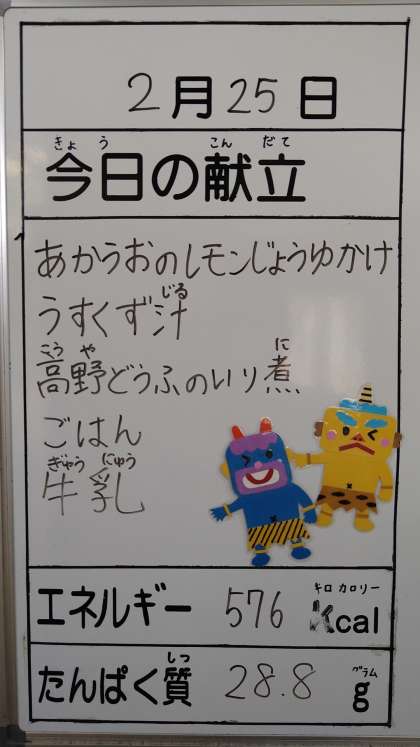 2月25日
きょう こん だて
今日の献立
あかうおのレモンじょうゆかけ
じる
うすくず汁
こう や に
高野どうふのいり煮
ごはん
ぎゅう にゅう
牛乳
キロ カロリー
エネルギー 576 Kcal
しつ グラム
たんぱく質 28.8 g